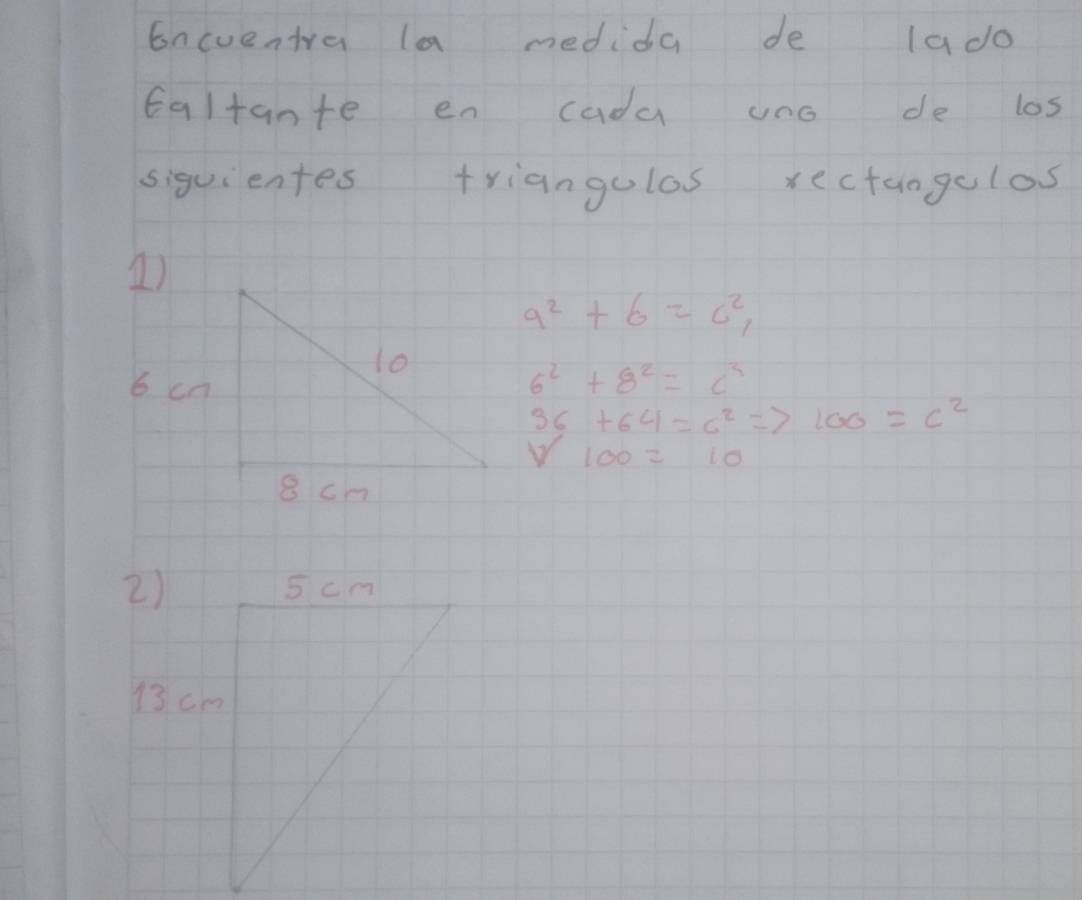 Encuentra la medida de lado
faltante en cada uno de los
siguientes triangulos rectangulos
1)
6 cm
10
8 cm
a² + b = c²,
6² + 8² = c²
36 + 64 = c² => 100 = c²
√ 100 = 10
2)
5 cm
13 cm